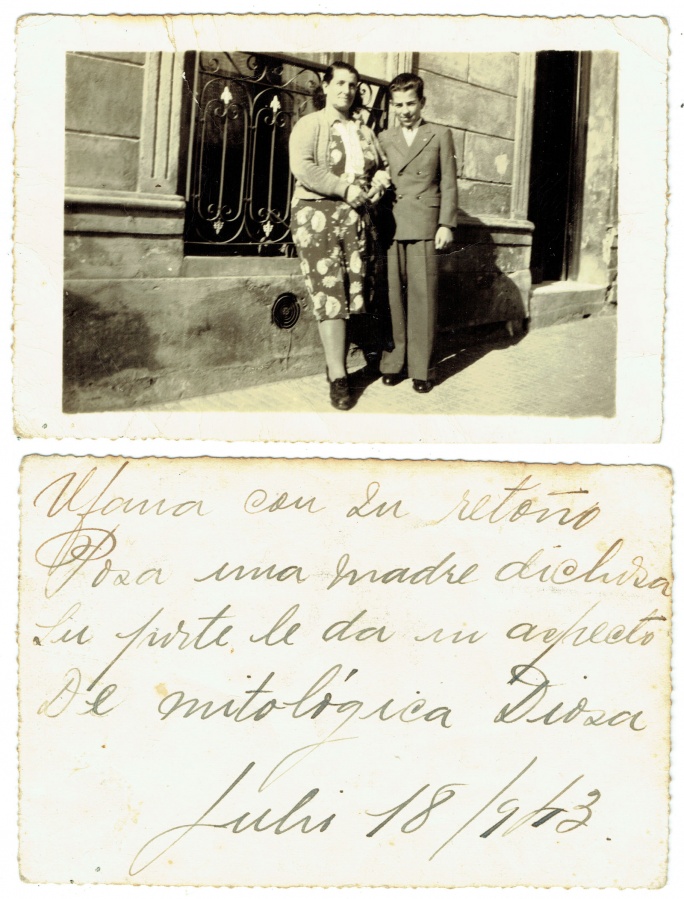 Ufana con su retoño
Posa una madre dichosa
Su porte le da un aspecto
De mitológica Diosa
Julio 18/943.